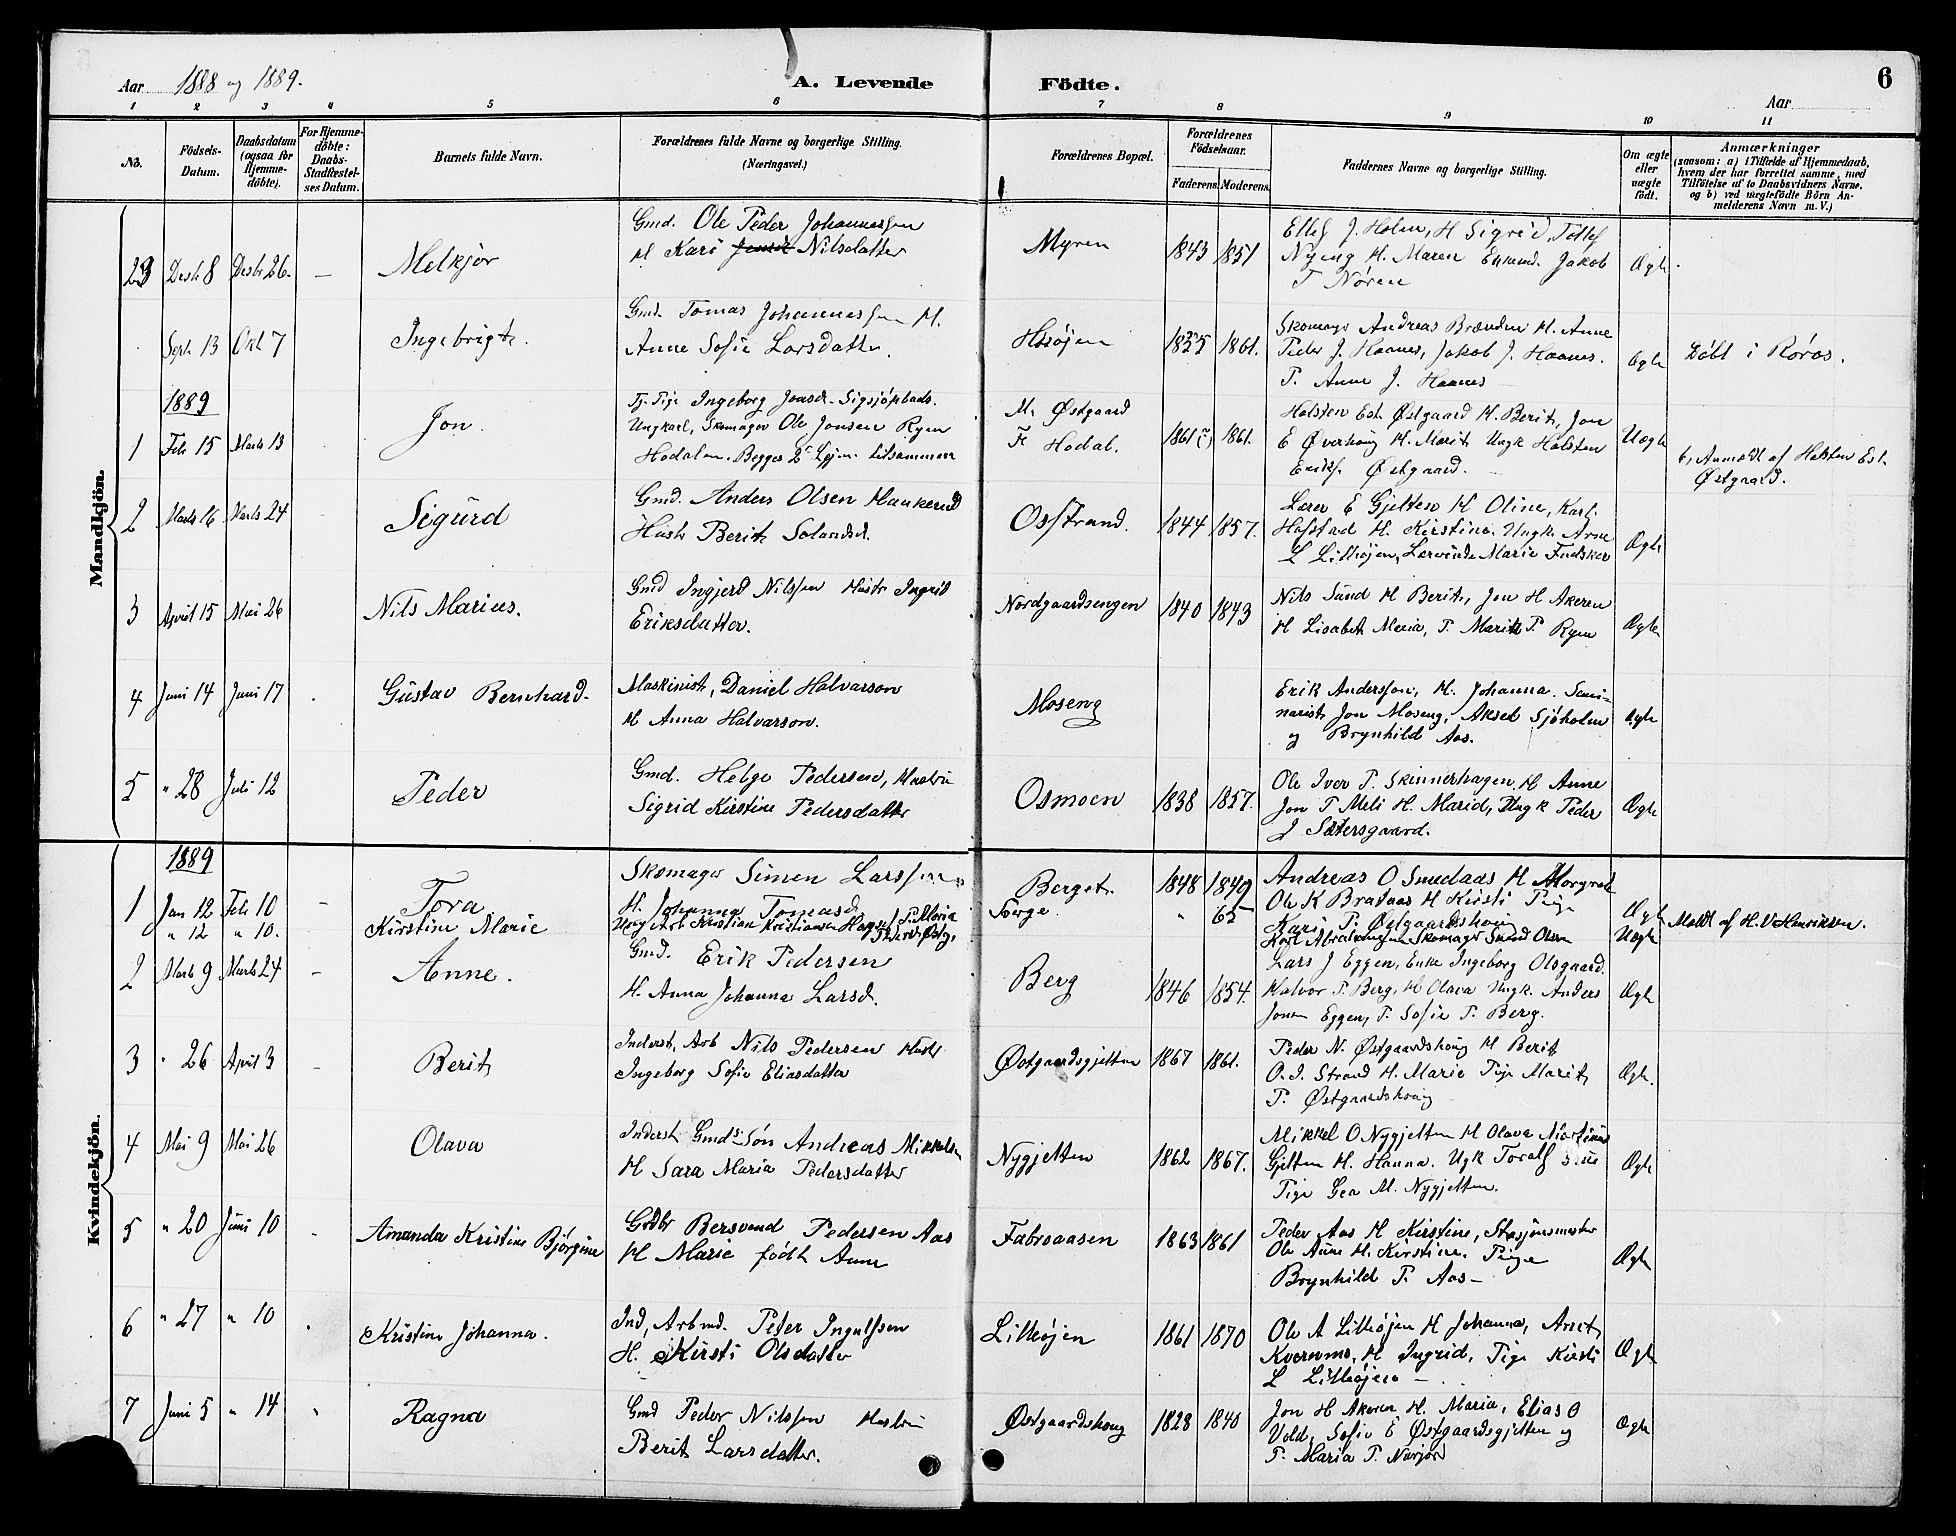 Aar 1888 og 1889.
A. Levende Födte.
Aar
6
1 2 3 4 5 6 7 8 9 10 11
No.
Födsels-Datum.
Daabsdatum (ogsaa for Hjemme-döbte).
For Hjemme-döbte: Daabs-Stadfæstel-ses Datum.
Barnets fulde Navn.
Forældrenes fulde Navne og borgerlige Stilling. (Næringsvei.)
Forældrenes Bopæl.
Forældrenes Födselsaar.
Faderens. Moderens.
Faddernes Navne og borgerlige Stilling.
Om ægte eller uægte födt.
Anmærkninger
(saasom: a) i Tilfælde af Hjemmedaab, hvem der har forrettet samme, med Tilföielse af to Daabsvidners Navne, og b) ved uægtefödte Börn Anmelderens Navn m. V.)
Mandkjön.
23 Desbr 8 Desbr 26. — Melkjør
Gmd. Ole Peder Johannessen
H Kari Nilsdatter
Myren 1843 1851
Ellef J. Holm, H Sigrid, Tollef
Nyeng H. Maren Enkemd. Jakob
T Nøren
Ægte
Septr 13 Okt 7 Ingebrigt.
Gmd. Tomas Johannessen H.
Anne Sofie Larsdatter.
1861.
Skomager Andreas Brænden H. Anne
Peder J. Haanes, Jakob J. Haanes.
P. Anne J. Haanes —
Ægte Døbt i Røros.
1889
1 Feb 15 Marts 13 Jon.
Tj. Pige Ingeborg Jonsd.
Ungkarl, Skomager Ole Jonsen Ryen
Hodalen. Begges 2d Lejm. tilsammen
M. Østgaard
F. Hodal. 1861 (?) 1861.
Halsten Est. Østgaard H. Berit, Jon
E Øverhaug H. Marit Ungk Halsten
Eriks. Østgaard. —
Uægte
b, Anmeldt af Halsten Est.
Østgaard.
2 Marts 16 Marts 24 Sigurd
Gmd. Anders Olsen
Hustr Berit
Osstrand. 1844 1857.
Lærer E Gjelten H Oline, Karl
Hofstad H. Kirstine. Ungk Arne
L Lilleøjen, Lærerinde Marie
Ægte
3 April 15 Mai 26 Nils Marius.
Gmd Ingjerd Nilssen Hustr Ingrid
Eriksdatter.
Nordgaardsengen 1840 1843
Nils Sund H Berit, Jon H Akeren
H Lisabet Maria, P. Marit P. Ryen
Ægte
4 Juni 14 Juni 17 Gustav Bernhard.
Maskinist, Daniel Halvarson
H Anna Halvarson.
Moseng
Erik Andersson, H. Johanna. Semi-
narist Jon Moseng, Aksel Sjöholm
og Brynhild Aas.
Ægte
5 " 28 Juli 12 Peder
Gmd. Helge Pedersen, Hustru
Sigrid Kirstine Pedersdatter
Osmoen 1838 1857.
Ole Iver P. Skinnerhagen H Anne
Jon T Meli H. Marid, Ungk Peder
J Sætersgaard.
Ægte
Kvindekjön.
1889
1 Jan 12 Feb 10 — Tora
Skomager Simen Larssen
H. Johanna Tomasd.
Berget. 1848 1849
Andreas O Smedaas H Margret
Ole K Brataas H Kirsti Pige
Kari P. Østgaardshaug
Ægte
" 12 " 10. Kirstine Marie
Ung Arb Kristian Kristiansen
" 65
Karl Abrahamsen Skomager Olsen
Uægte Meldt af H. V Henriksen.
2 Marts 9 Marts 24 — Anne.
Gmd. Erik Pedersen
H. Anna Johanna Larsd.
Berg 1846 1854.
Lars J Eggen, Enke Ingeborg Olsgaard.
Halvor P. Berg, H Olava Ungk. Anders
Jonsen Eggen, P. Sofie P. Berg.
Ægte
3 " 26 April 3 — Berit
Inderst, Arb Nils Pedersen Hustr
Ingeborg Sofie Eliasdatter
Østgaardsgjelten 1867 1861.
Peder N. Østgaardshaug H Berit
O. J. Strand H. Marie Pige Marit
P. Østgaardshaug
Ægte.
4 Mai 9 Mai 26 Olava
Inderst Gmds Søn Andreas Mikkelsen
H Sara Maria Pedersdatter
Nygjelten 1862 1867.
Mikkel O Nygjelten H Olava
Gjelten H. Hanna. Ugk Toralf
Pige Gea M. Nygjelten.
Ægte
5 " 20 Juni 10 Amanda Kristine Bjørgine
Grdbr Bersvend Pedersen Aas
H Marie født Aune
Fabroaasen 1863 1861
Peder Aas H Kirstine, Stasjonsmester
Ole Aune H. Kirstine. Pige
Brynhild P. Aas —
Ægte
6 " 27 " 10 Kristine Johanna.
Ind, Arbmd. Peder Ingulfsen
H. Kirsti Olsdatter
Lilleøjen 1861 1870
Ole A Lilleøjen H Johanna,
H Ingrid, Pige Kirsti
L Lilleøjen —
Ægte
7 Juni 5 " 14 " Ragna
Gmd Peder Nilssen Hustru
Berit Larsdatter.
Østgaardshaug 1828 1840
Jon H Akeren H. Maria, Elias O
Vold, Sofie E Østgaardsgjelten og
P. Maria P. Narjord
Ægte